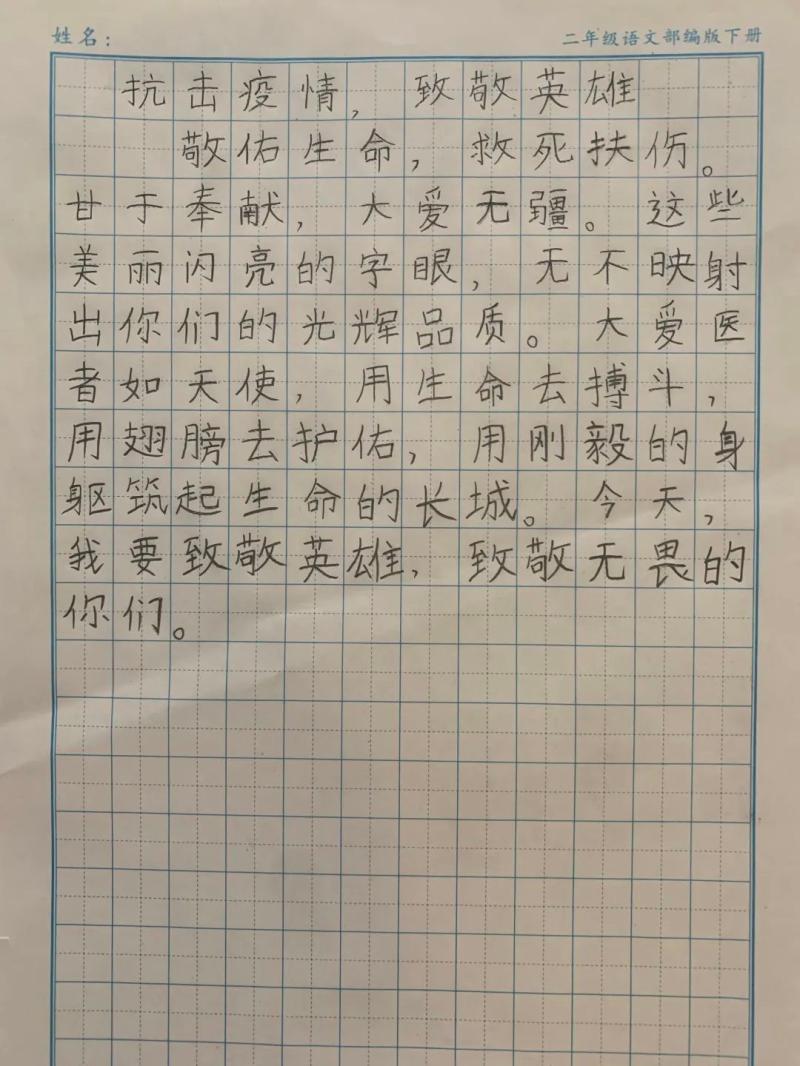 姓名：
二年级语文部编版下册
抗击疫情，致敬英雄
敬佑生命，救死扶伤。
甘于奉献，大爱无疆。这些
美丽闪亮的字眼，无不映射
出你们的光辉品质。大爱医
者如天使，用生命去搏斗，
用翅膀去护佑，用刚毅的身
躯筑起生命的长城。今天，
我要致敬英雄，致敬无畏的
你们。